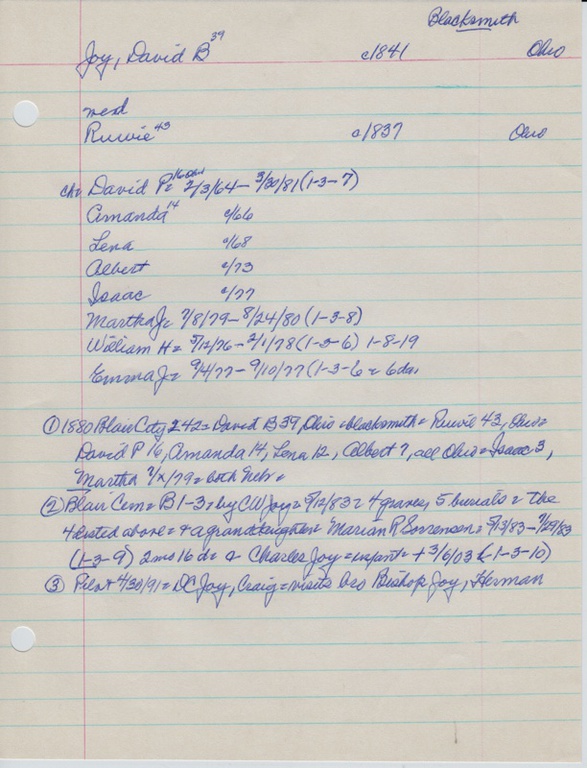 Blacksmith
Joy, David B 39 c1841 Ohio
med
Ruvie 43 c1837 Ohio
ch= David P= 16 Ohio 2/3/64 - 3/30/81 (1-3-7)
Amanda 14 c/66
Lena c/68
Albert c/73
Isaac c/77
Martha J= 7/8/79 - 8/24/80 (1-3-8)
William H= 3/12/76 - 2/1/78 (1-3-6) 1-8-19
Emma J= 9/4/77 - 9/10/77 (1-3-6 = 6da.
① 1880 Blair City 242= David B 39, Ohio = blacksmith= Ruvie 43, Ohio=
David P 16, Amanda 14, Lena 12, Albert 7, all Ohio= Isaac 3,
Martha 7/x/79= both Nebr=
② Blair Cem= B1-3= by CW Joy= 9/12/83= 4 graves, 5 burials= the
4 listed above= + a granddaughter= Marian P. Sorrenson= 5/13/83- 7/29/83
(1-3-9) 2mos 16 d= & Charles Joy= infant= + 3/6/03 (1-3-10)
③ Pilot 4/30/91= DC Joy, Craig= visits bro Bishop Joy, Herman